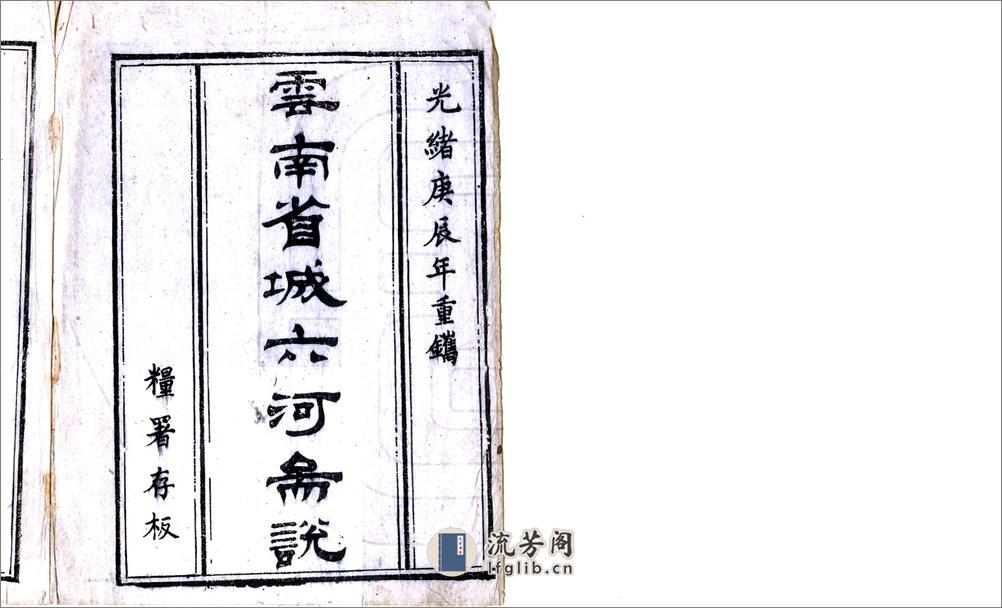 光緒庚辰年重鐫
雲南省城六河圖說
糧署存板
流芳阁
lfglib.cn